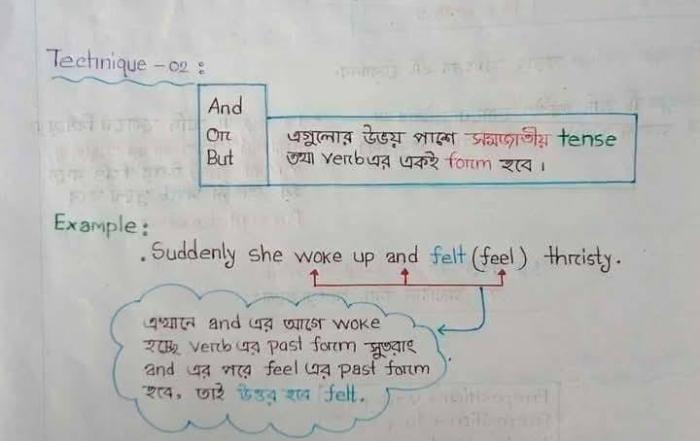 Technique - 02 :
And
Or
But
এগুলোর উভয় পাশে সমজাতীয় tense
তথা verb এর একই form হবে।
Example :
. Suddenly she woke up and felt (feel) thristy.
এখানে and এর আগে woke
হচ্ছে verb এর past form সুতরাং
and এর পরে feel এর past form
হবে, তাই উত্তর হবে felt.